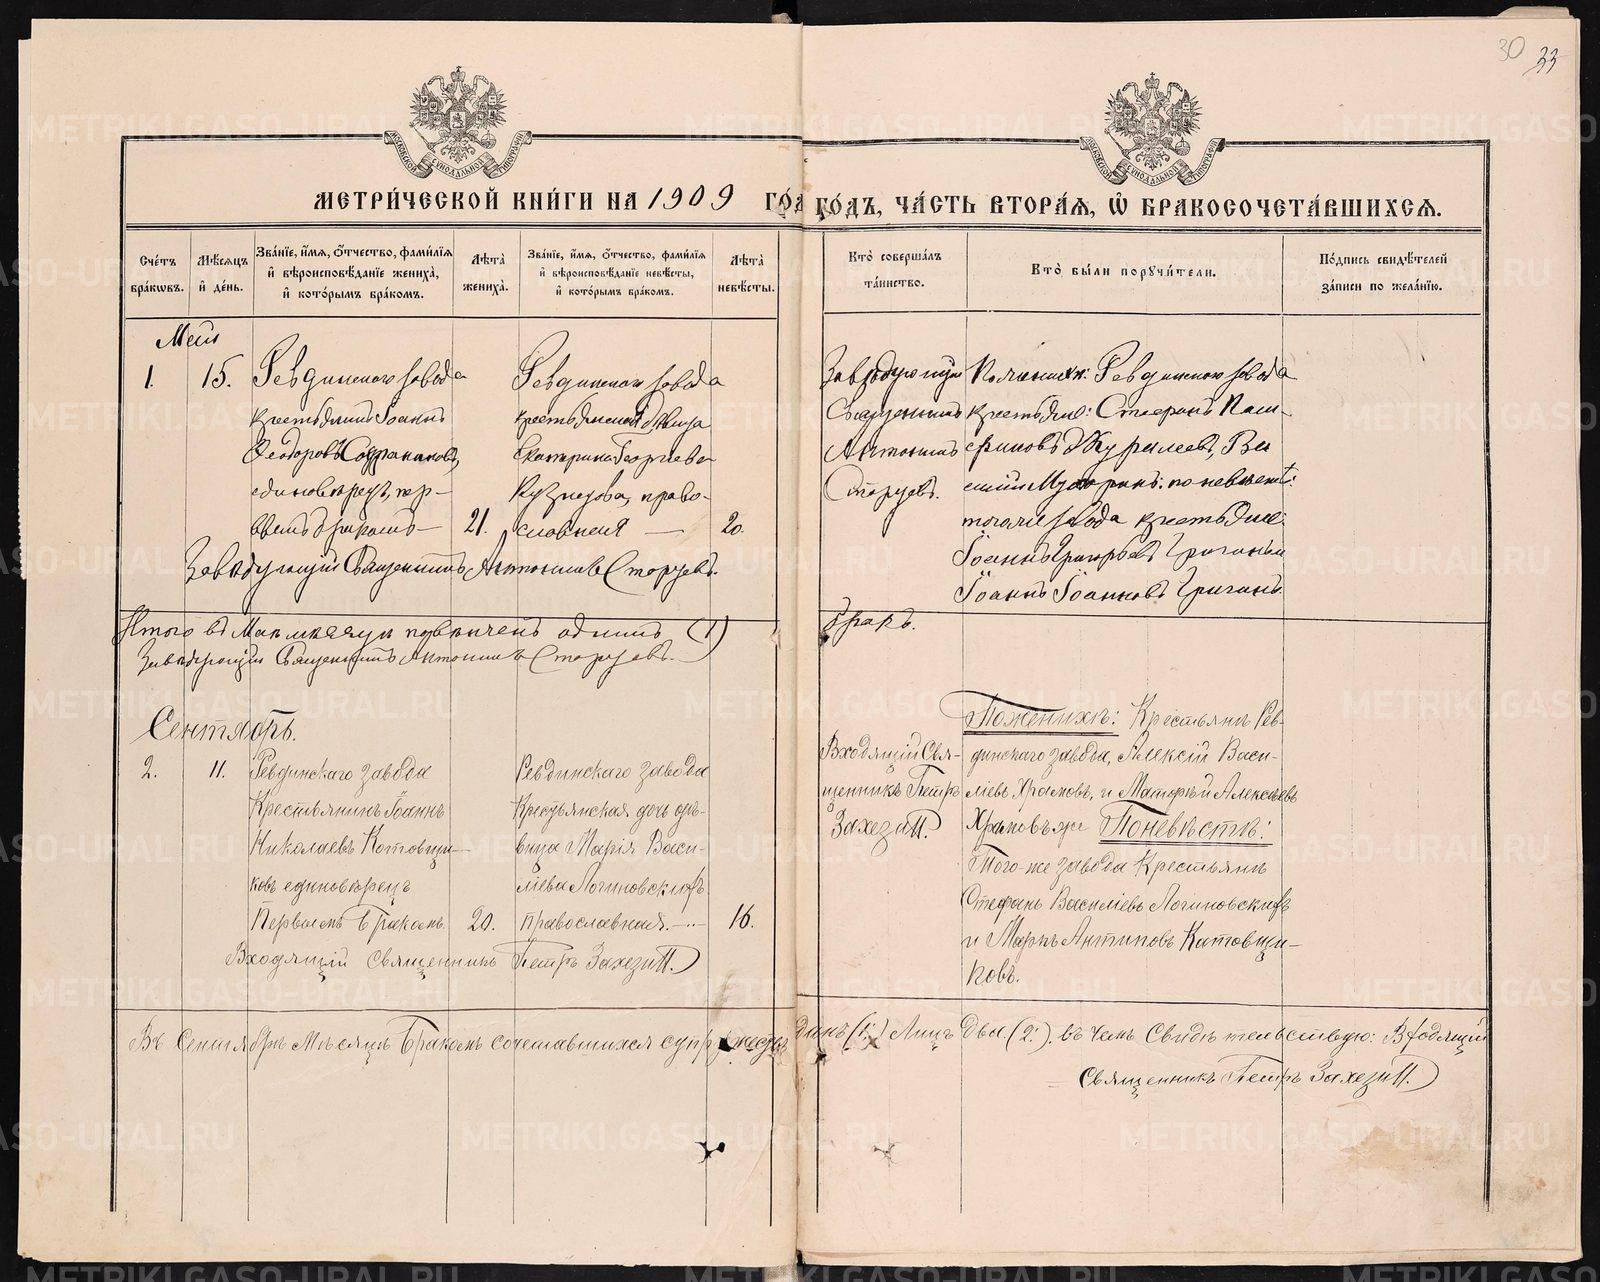 30 33
МЕТРИ́ЧЕСКОЙ КНИ́ГИ НА 1909 ГО́Д ГО́ДЪ, ЧА́СТЬ ВТОРА́Я, Ѡ БРАКОСОЧЕТА́ВШИХСЯ.
Сче́тъ бра́кѡвъ.
Мѣ́сяцъ и҆ де́нь.
Зва́нїе, и҆́мя, ѻ҆́тчество, фами́лїя и҆ вѣроисповѣ́данїе жениха̀, и҆ кото́рымъ бра́комъ.
Лѣта̀ жениха̀.
Зва́нїе, и҆́мя, ѻ҆́тчество, фами́лїя и҆ вѣроисповѣ́данїе невѣ́сты, и҆ кото́рымъ бра́комъ.
Лѣта̀ невѣ́сты.
Кто̀ соверша́лъ та́инство.
Кто̀ бы́ли поручи́тели.
По́дпись свидѣ́телей за́писи по жела́нїю.
Май
1. 15.
Ревдинскаго завода
крестьянинъ Іоаннъ
Ѳеодоровъ
единовѣрецъ, пер-
вымъ бракомъ
21.
Ревдинскаго завода
крестьянская дѣвица
Екатерина Георгіева
Кузнецова, право-
славная
20.
Завѣдующій
Священникъ
Антоній
Старцевъ.
По женихѣ: Ревдинскаго завода
крестьяне: Стефанъ
Журавлевъ, Ва
по невѣстѣ:
того же завода крестьяне:
Іоаннъ Григорьевъ
Іоаннъ Іоанновъ
Завѣдующій Священникъ Антоній Старцевъ.
Итого въ Маѣ мѣсяцѣ повѣнчанъ одинъ (1) бракъ.
Завѣдующій Священникъ Антоній Старцевъ.
Сентябрь.
2. 11.
Ревдинскаго завода
Крестьянинъ Іоаннъ
Николаевъ Котовщи-
ковъ единовѣрецъ
Первымъ Бракомъ.
20.
Ревдинскаго завода
Крестьянская дочь дѣ-
вица Марія Васи-
ліева Логиновскихъ
православная.
16.
Входящій Свя-
щенникъ Петръ
Захезинъ.
По женихѣ: Крестьянъ Рев-
динскаго завода, Алексій Васи-
ліевъ Храмовъ, и Матѳій Алексѣевъ
Храмовъ же По невѣстѣ:
Того же завода Крестьянъ
Стефанъ Василіевъ Логиновскихъ
и Маркъ Антиповъ Котовщи-
ковъ.
Входящій Священникъ Петръ Захезинъ.
Въ Сентябрѣ Мѣсяцѣ Бракомъ сочетавшихся супружествъ динъ (1.) Лицъ Два. (2.). въ чемъ Свидѣтельствую: Входящій
Священникъ Петръ Захезинъ.
METRIKI.GASO-URAL.RU